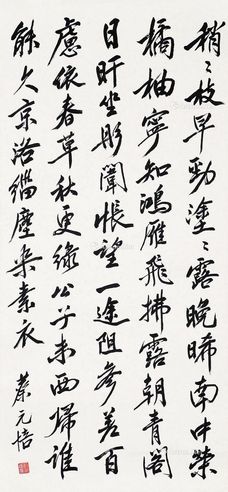 梢〻枝早勁塗〻露晚晞南中榮
橘柚寧知鴻雁飛拂露朝青閣
日旰坐彤闈悵望一途阻參差百
慮依春草秋更綠公子未西歸誰
能久京洛緇塵染素衣
蔡元培